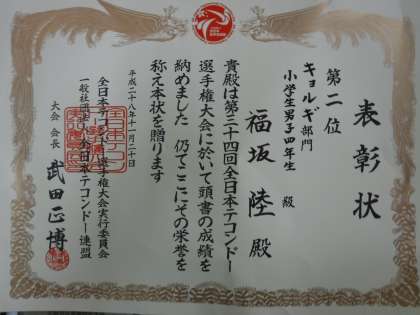 表彰状
第二位
キョルギ部門
小学生男子四年生 級
福坂陸殿
貴殿は第三十四回全日本テコンドー
選手権大会に於いて頭書の成績を
納めました 仍てここにその栄誉を
称え本状を贈ります
平成二十八年十一月二十日
全日本テコンドー選手権大会実行委員会
一般社団法人全日本テコンドー連盟
大会会長 武田正博